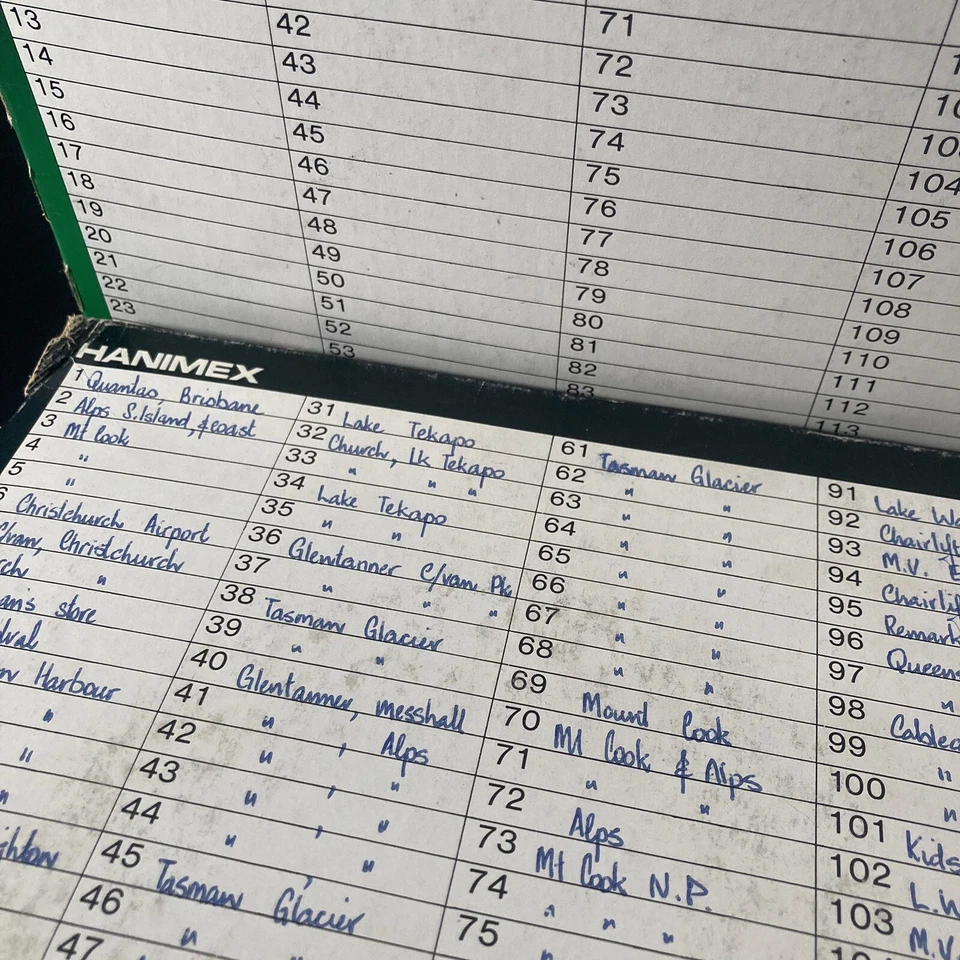 13 42 71
14 43 72
15 44 73
16 45 74
17 46 75 104
18 47 76 105
19 48 77 106
20 49 78 107
21 50 79 108
22 51 80 109
23 52 81 110
53 82 111
83 112
113
HANIMEX
1 Quantas, Brisbane
2 Alps S.Island, & coast
3 Mt Cook
4 " 
5 "
Christchurch Airport
C/van, Christchurch
"
store
Harbour
"
"
"
31 Lake Tekapo
32 Church, Lk Tekapo
33 " " "
34 Lake Tekapo
35 " "
36 Glentanner C/van Pk
37 " " "
38 Tasman Glacier
39 " "
40 Glentanner, messhall
41 " , Alps
42 " , "
43 " , "
44 " , "
45 Tasman Glacier
46 "
47
61 Tasman Glacier
62 " "
63 " "
64 " "
65 " "
66 " "
67 " "
68 " "
69 Mount Cook
70 Mt Cook & Alps
71 " "
72 Alps
73 Mt Cook N.P.
74 " " "
75 "
91 Lake
92 Chairlift
93 M.V.
94
95
96
97 "
98
99 "
100 "
101 Kids
102
103 M.V.